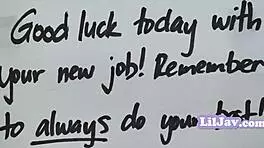 Good luck today with
your new job! Remember
to always do your best!
LilJav.com